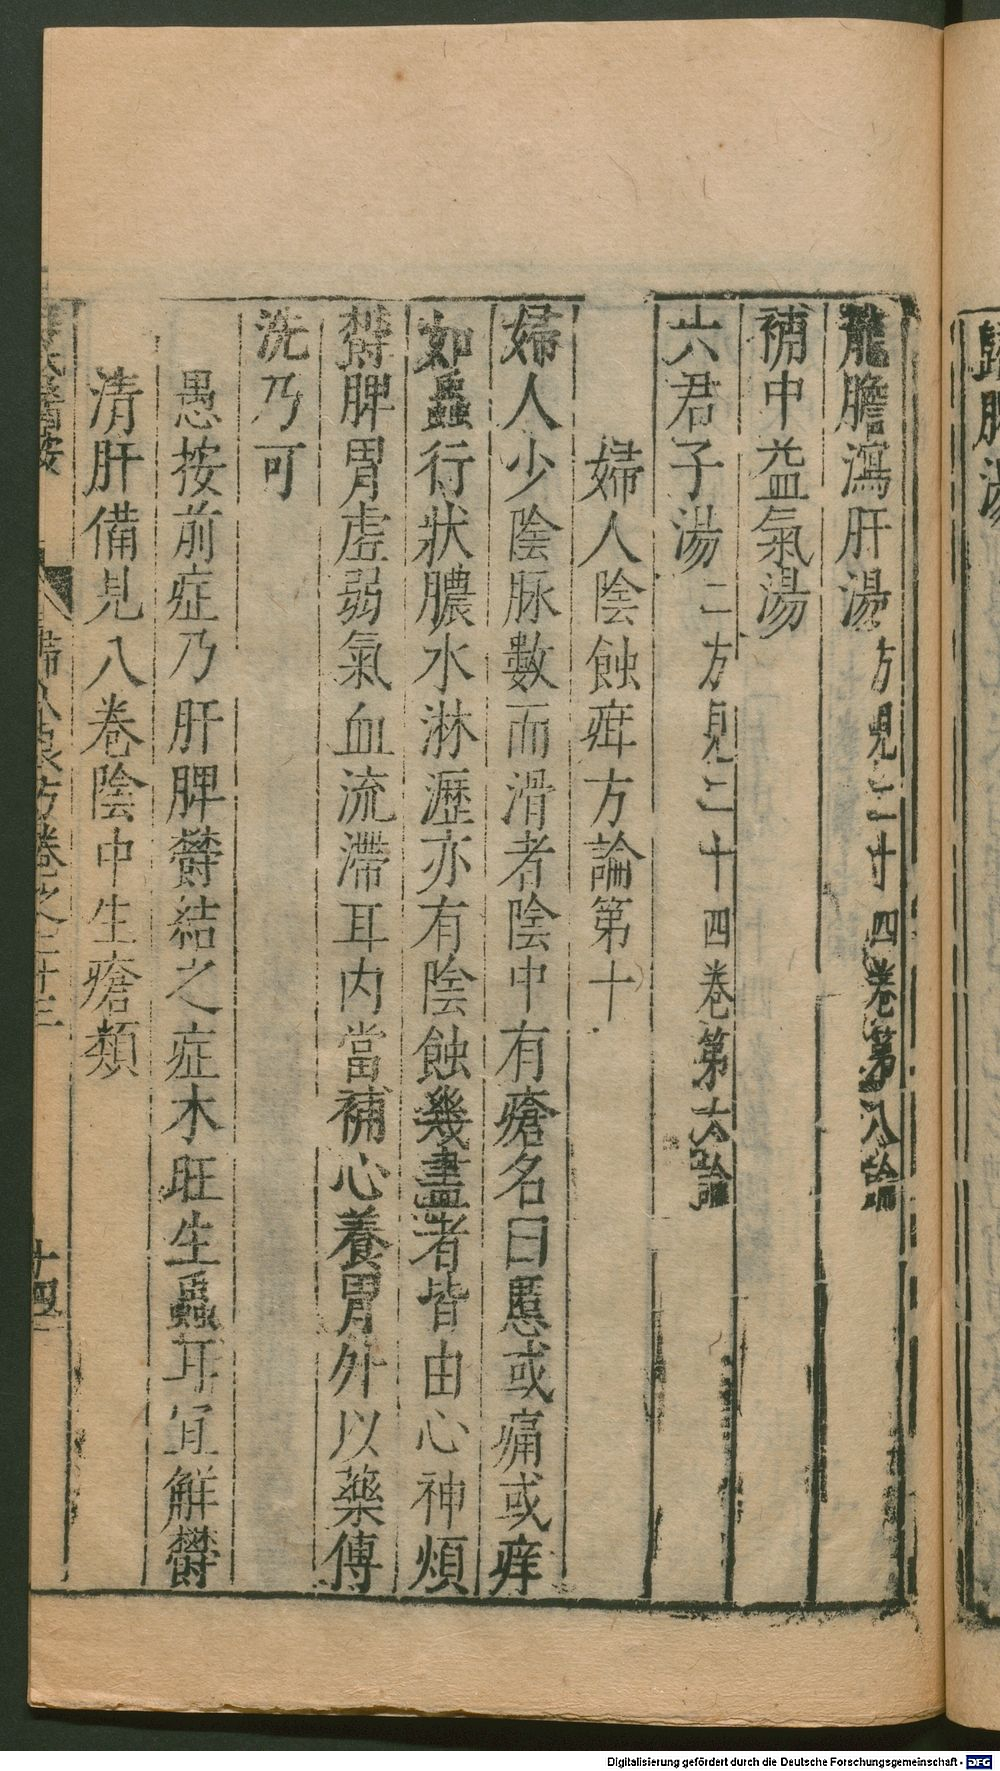 龍膽瀉肝湯方見二十四卷第八論
補中益氣湯
六君子湯二方見二十四卷第六論
婦人陰蝕痒方論第十
婦人少陰脉數而滑者陰中有瘡名曰䘌或痛或痒
如蟲行狀膿水淋瀝亦有陰蝕幾盡者皆由心神煩
欝脾胃虛弱氣血流滯耳内當補心養胃外以藥傅
洗乃可
愚按前症乃肝脾欝結之症木旺生蟲耳宜觧欝
清肝備見八卷陰中生瘡類
婦人良方卷之二十三
十四
Digitalisierung gefördert durch die Deutsche Forschungsgemeinschaft - DFG